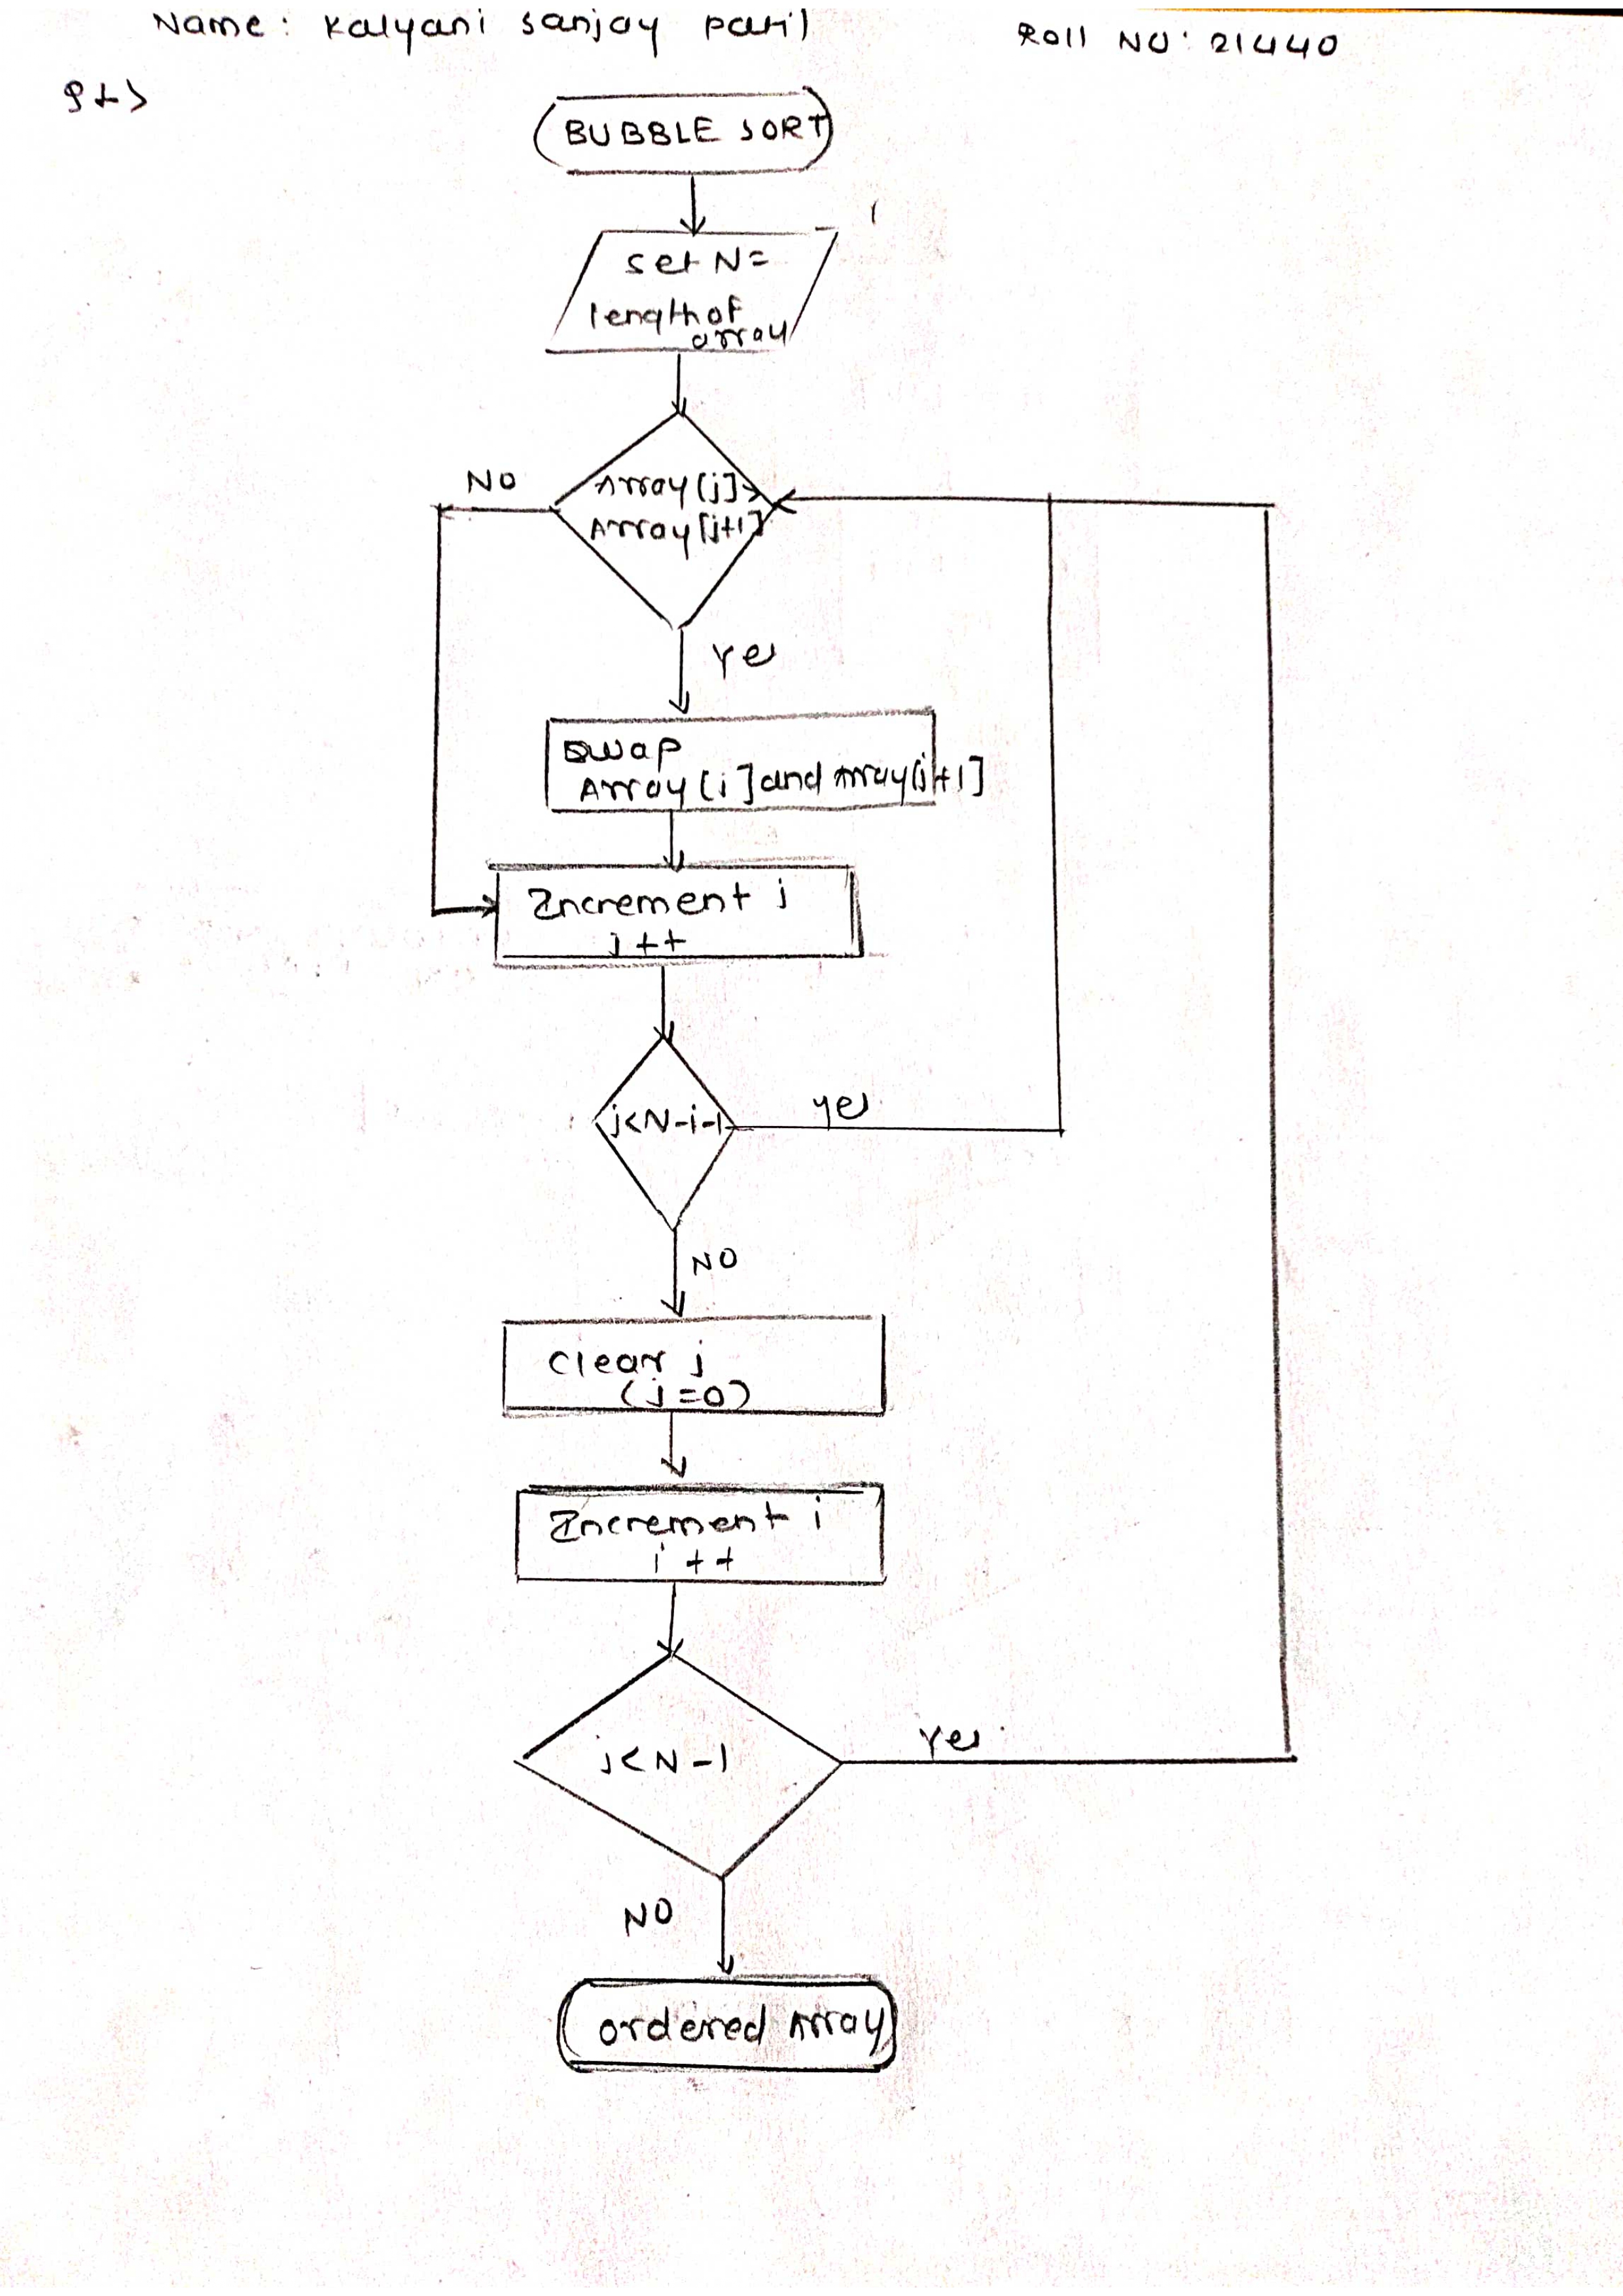 Name: Kalyani Sanjay Patil Roll NO: 21440
BUBBLE SORT
set N=
length of
array
NO
Array[j]>
Array[j+1]
Yes
Swap
Array[i] and Array[j+1]
Increment j
j++
j<N-i-1
yes
NO
clear j
(j=0)
Increment i
i++
j<N-1
Yes
NO
ordered Array